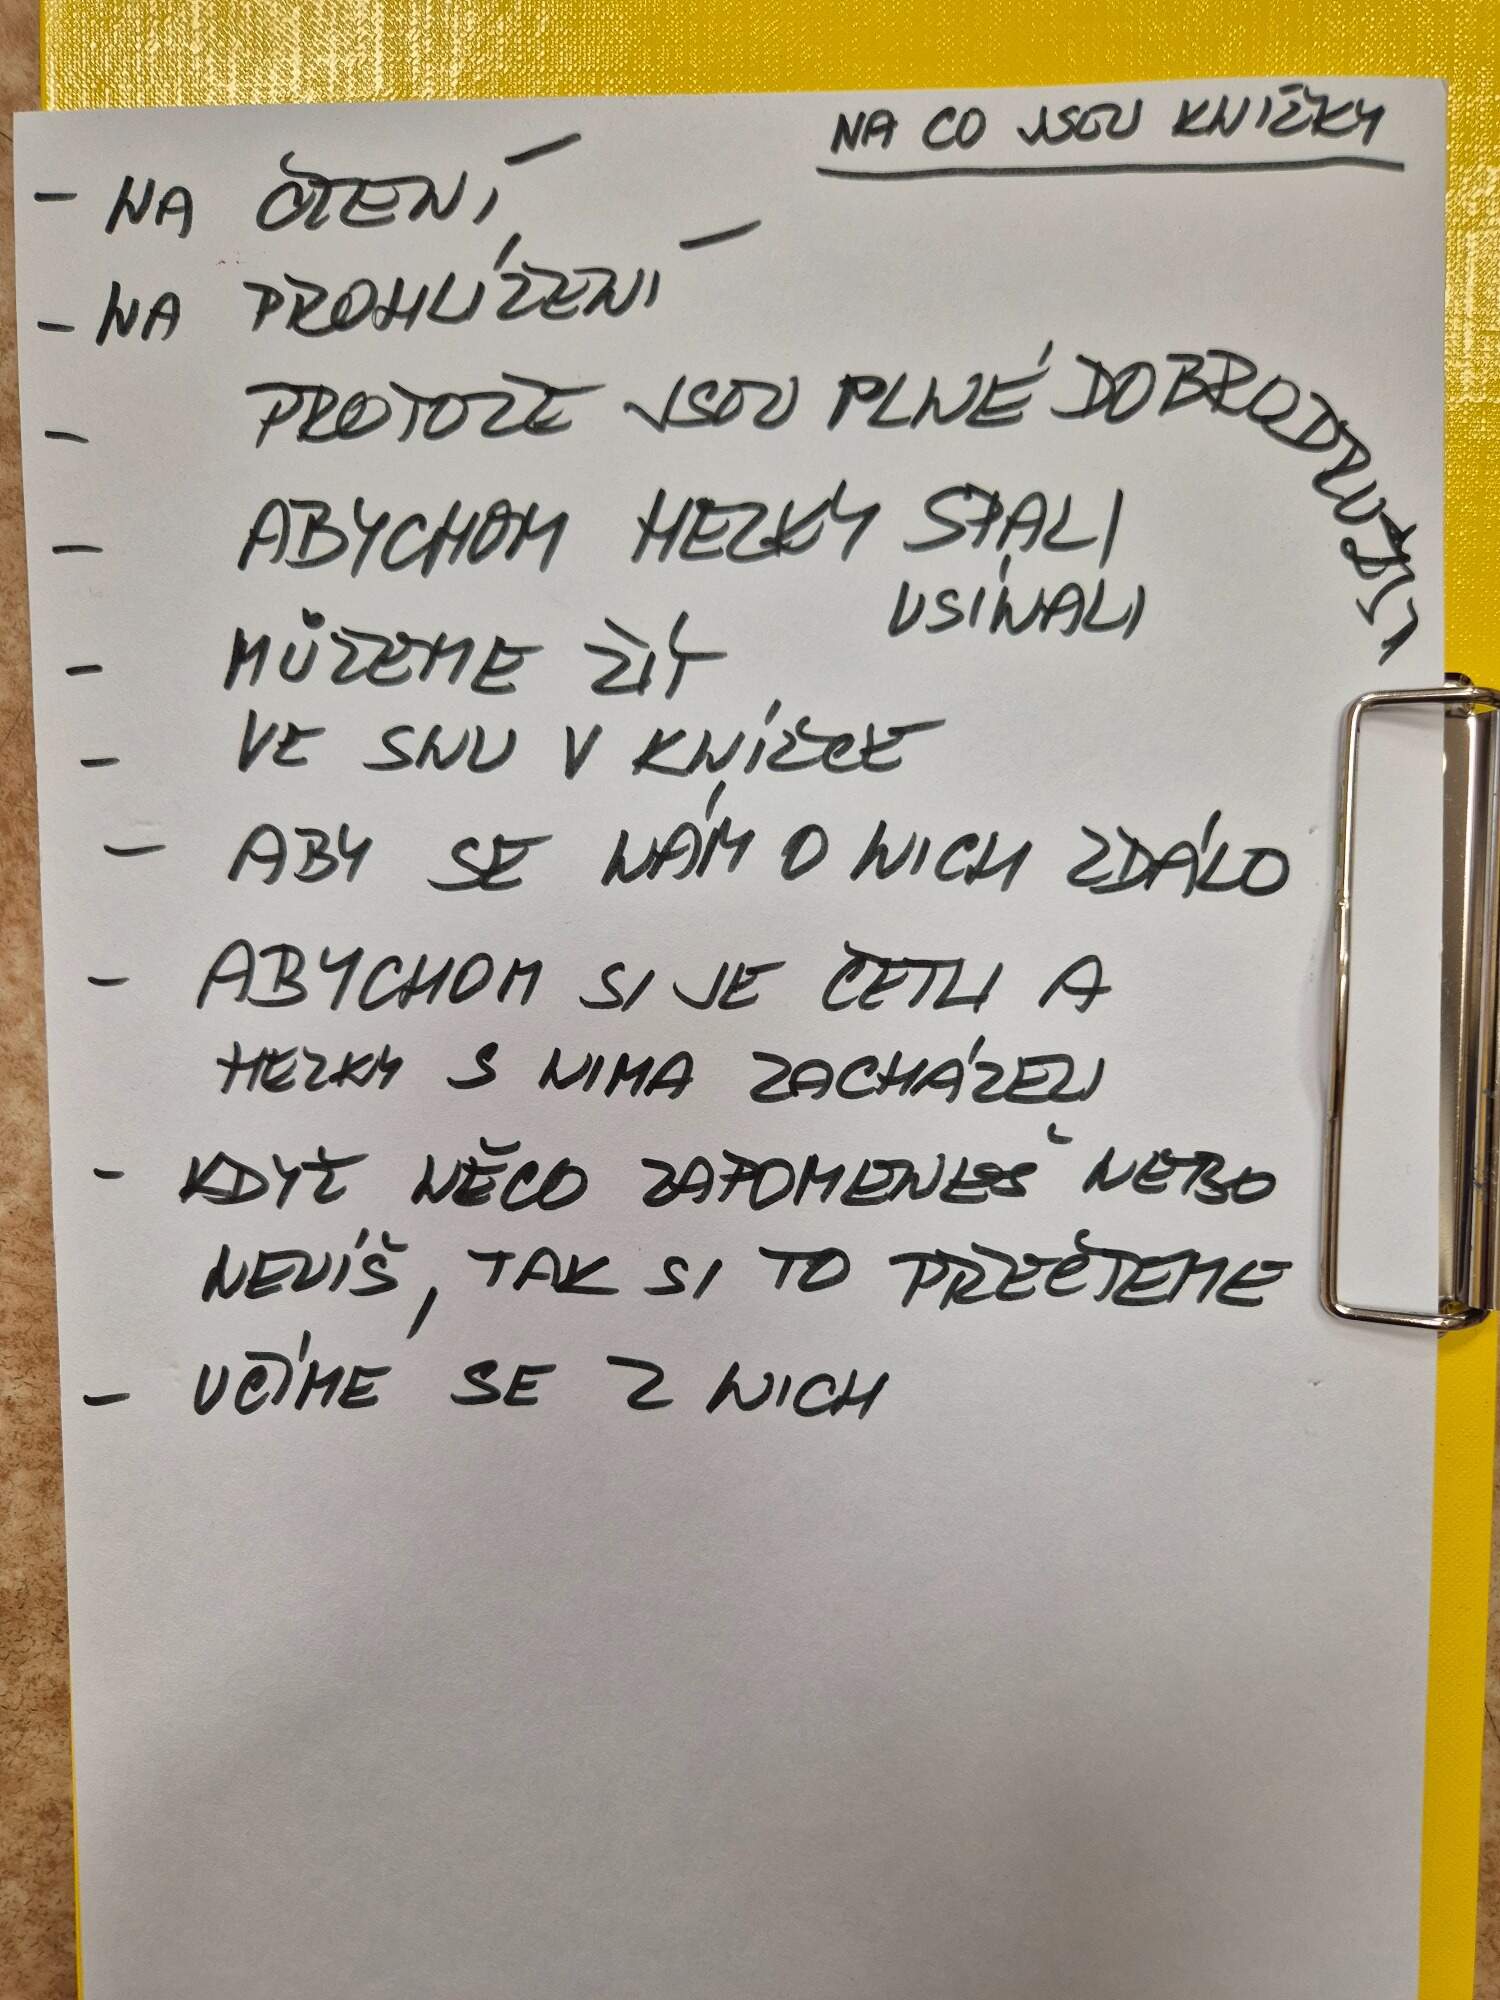 NA CO JSOU KNÍŽKY
- NA ČTENÍ -
- NA PROHLÍŽENÍ -
- PROTOŽE JSOU PLNÉ DOBRODRUŽSTVÍ
- ABYCHOM HEZKY SPALI
USÍNALI
- MŮŽEME ŽÍT
- VE SNU V KNÍŽCE
- ABY SE NÁM O NICH ZDÁLO
- ABYCHOM SI JE ČETLI A
HEZKY S NIMA ZACHÁZELI
- KDYŽ NĚCO ZAPOMENEŠ NEBO
NEVÍŠ, TAK SI TO PŘEČTEME
- UČÍME SE Z NICH